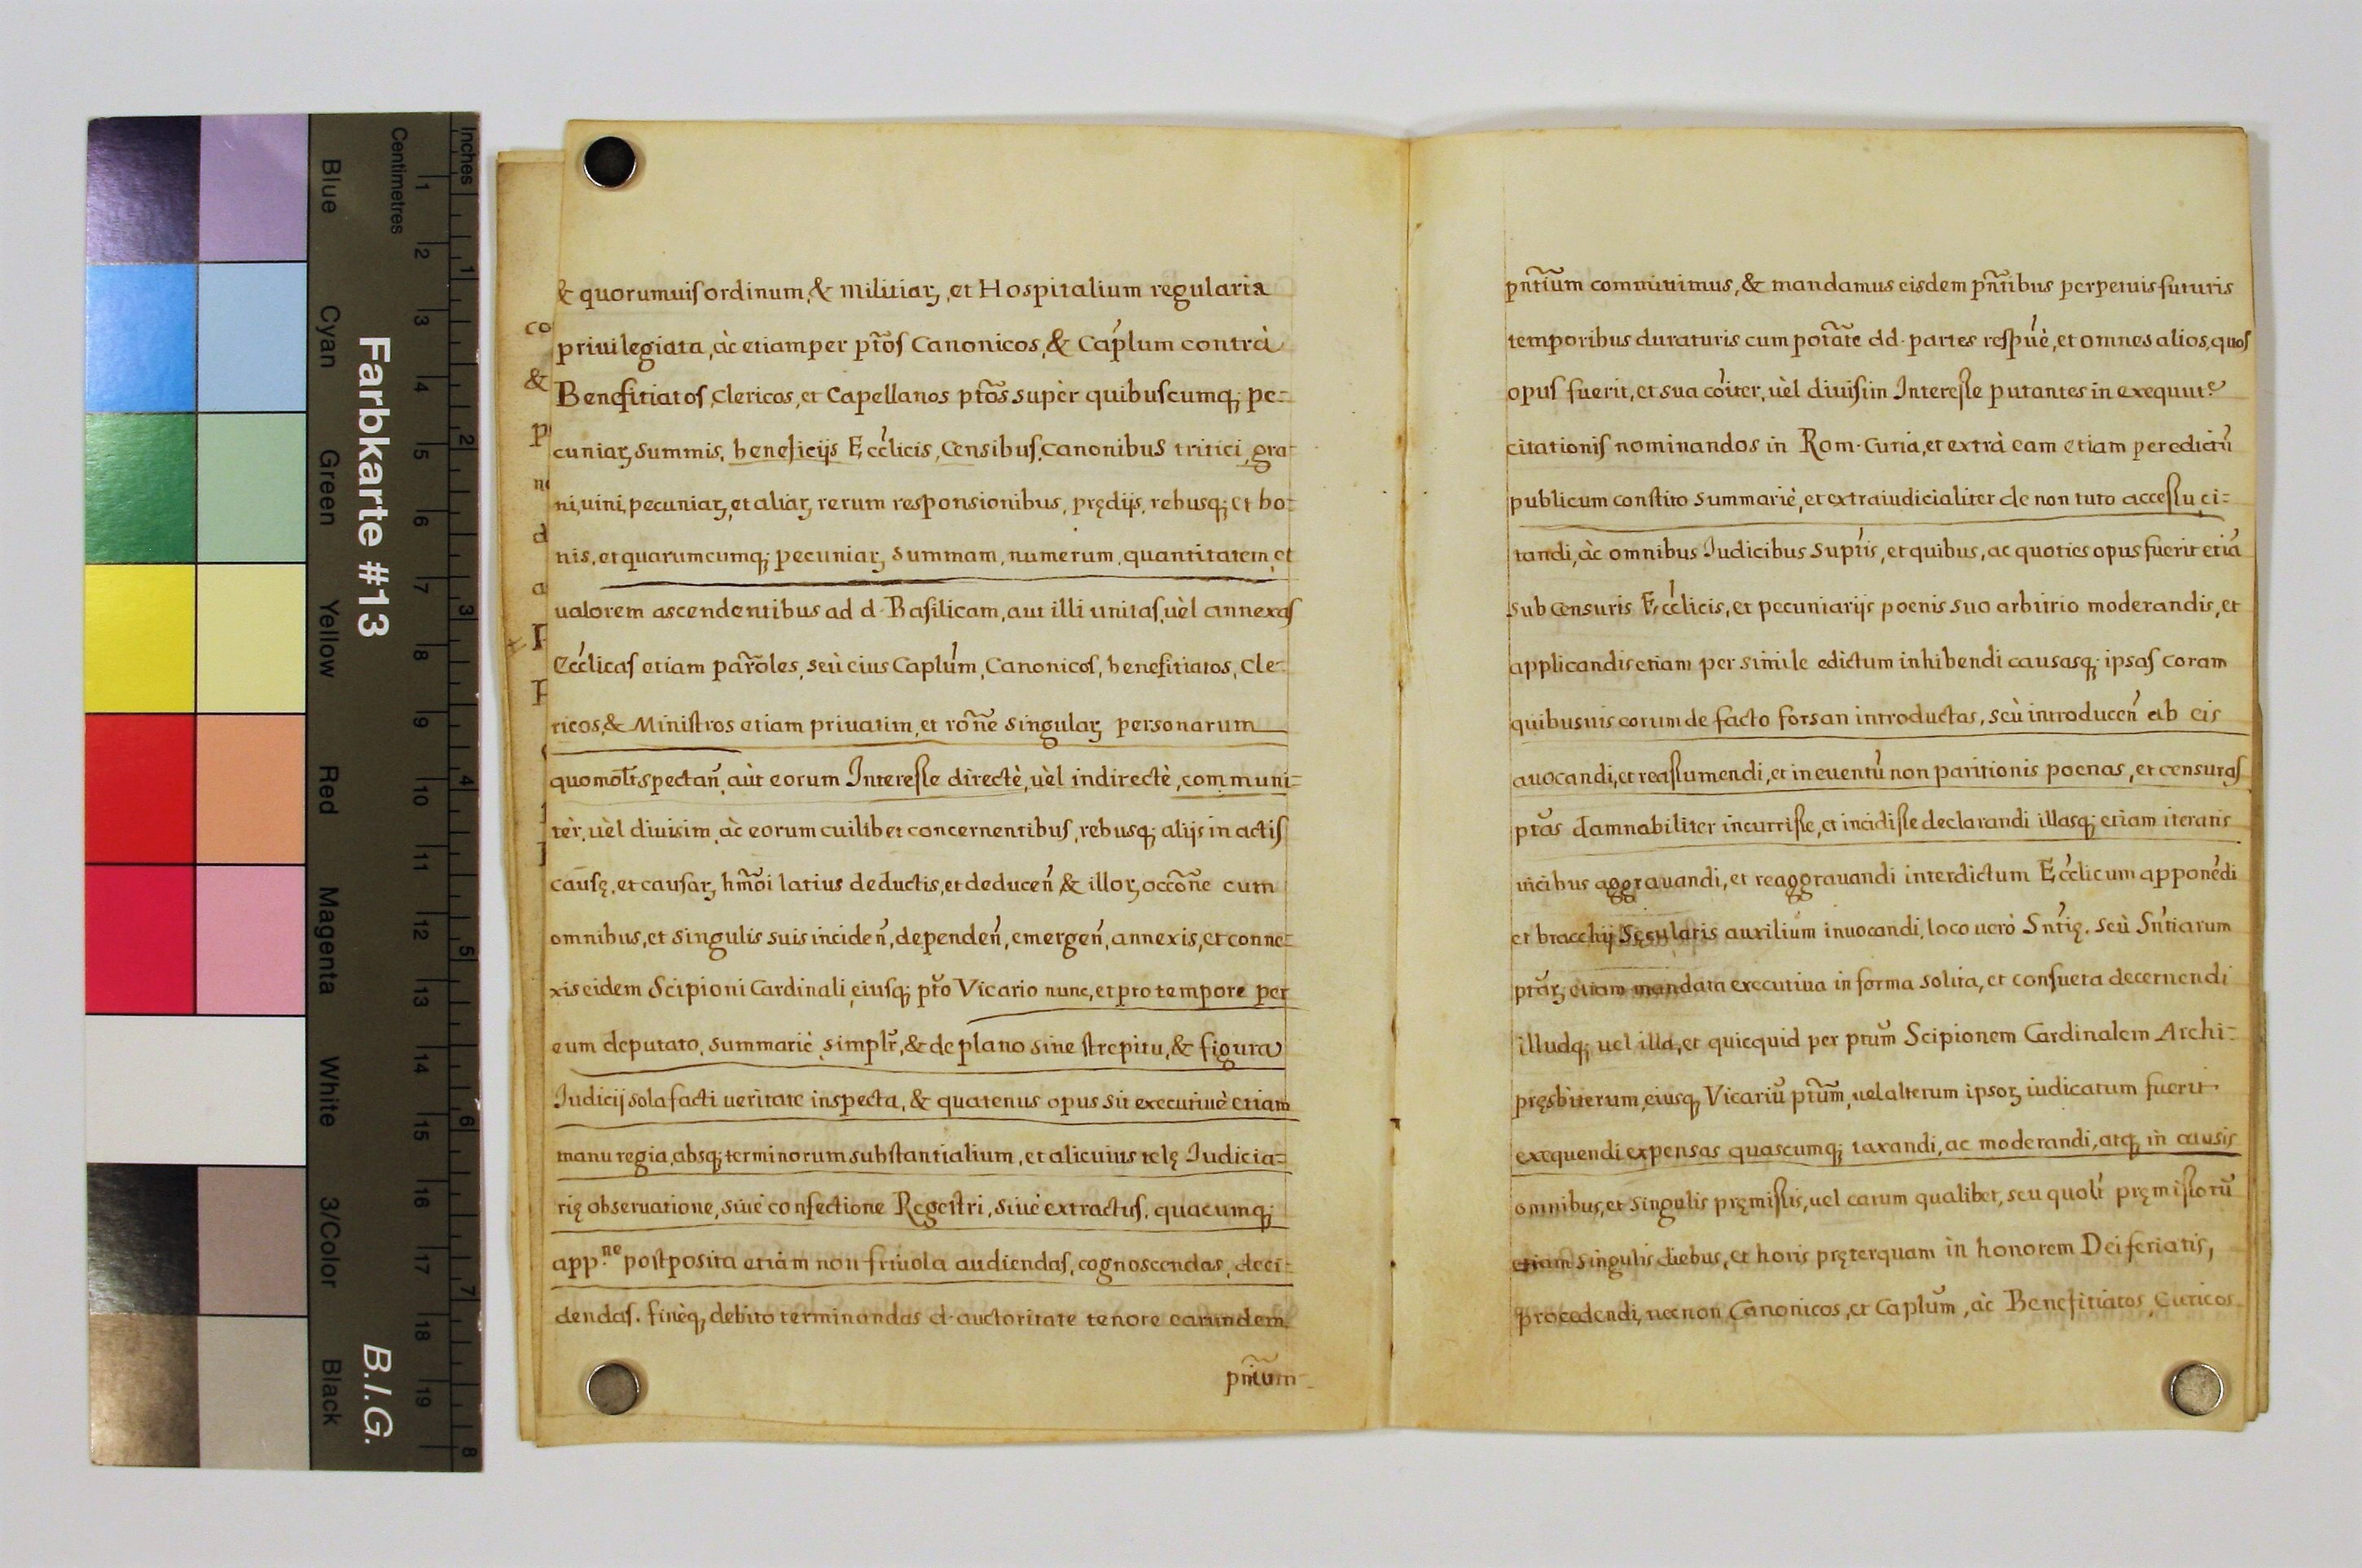 Inches
Centimetres
1 2 3 4 5 6 7 8 9 10 11 12 13 14 15 16 17 18 19
1 2 3 4 5 6 7 8
Blue Cyan Green Yellow Red Magenta White 3/Color Black
Farbkarte #13
B.I.G.
& quorumuis ordinum, & militiarꝫ, et Hospitalium regularia
priuilegiata, àc etiam per pt̃os Canonicos, & Cap'lum contrà
Benefitiatos, Clericos, et Capellanos pt̃os supèr quibuscumqꝫ pe=
cuniarꝫ summis, beneficijs Ecc'licis, Censibus, canonibus tritici, gra-
ni, uini, pecuniarꝫ, et aliarꝫ rerum responsionibus, prędijs, rebusqꝫ et bo=
nis, et quarumcumqꝫ pecuniarꝫ summam, numerum, quantitatem, et
ualorem ascendentibus ad d. Basilicam, aut illi unitas, uèl annexas
Ecc'licas etiam par̃oles, seù eius Capl'um, Canonicos, benefitiatos, Cle-
ricos, & Ministros etiam priuatim, et ro͠ne singularꝫ personarum
quomol̃t spectan̄, aùt eorum Interesse directè, uèl indirectè, communi=
tèr, uèl diuisim, àc eorum cuilibet concernentibus, rebusqꝫ alijs in actis
causę, et causarꝫ hm̃oi latius deductis, et deducen̄ & illorꝫ occo͠ne cum
omnibus, et singulis suis inciden̄, dependen̄, emergen̄, annexis, et conne=
xis eidem Scipioni Cardinali, eiusqꝫ pt̃o Vicario nunc, et pro tempore per
eum deputato, summariè, simpl̃r, & de plano sine strepitu, & figura
Iudicij sola facti ueritate inspecta, & quatenus opus sit executiuè etiam
manu regia, absqꝫ terminorum substantialium, et alicuius telę Iudicia=
rię obseruatione, siuè confectione Regestri, siuè extractus, quacumqꝫ
app.ne postposita etiàm non friuola audiendas, cognoscendas, deci-
dendas, finèqꝫ debito terminandas d. auctoritate tenore earundem
pn̄tium
pn̄tium committimus, & mandamus eisdem pn̄tibus perpetuis futuris
temporibus duraturis cum potãte dd. partes resp'uè, et omnes alios, quos
opus fuerit, et sua co'iter, uèl diuisim Interesse putantes in exequut.e
citationis nominandos in Rom. Curia, et extrà eam etiam per edictū
publicum constito summariè, et extraiudicialiter de non tuto accessu ci=
tandi, àc omnibus Iudicibus sup'tis, et quibus, ac quoties opus fuerit etiā
sub Censuris Ecc'licis, et pecuniarijs poenis suo arbitrio moderandis, et
applicandis etiam per simile edictum inhibendi causasqꝫ ipsas coram
quibusuis eorum de facto forsan introductas, seù introducen̄ ab eis
auocandi, et reassumendi, et in euentū non paritionis poenas, et censuras
pt̃as damnabiliter incurrisse, et incidisse declarandi illasqꝫ etiam iteratis
uicibus aggrauandi, et reaggrauandi interdictum Ecc'licum apponēdi
et bracchij Sęcularis auxilium inuocandi, loco uerò Sn'tię, seù Sn'tiarum
pt̃arꝫ etiam mandata executiua in forma solita, et consueta decernendi
illudqꝫ uel illa, et quicquid per pt̃um Scipionem Cardinalem Archi=
pręsbiterum, eiusqꝫ Vicariū pt̃um, uel alterum ipsorꝫ iudicatum fuerit
exequendi expensas quascumqꝫ taxandi, ac moderandi, atqꝫ in causis
omnibus, et singulis pręmissis, uel earum qualibet, seu quol't pręmissorū
etiam singulis diebus, et horis pręterquam in honorem Dei feriatis,
procedendi, necnon Canonicos, et Capl̃um, àc Benefitiatos, Clericos